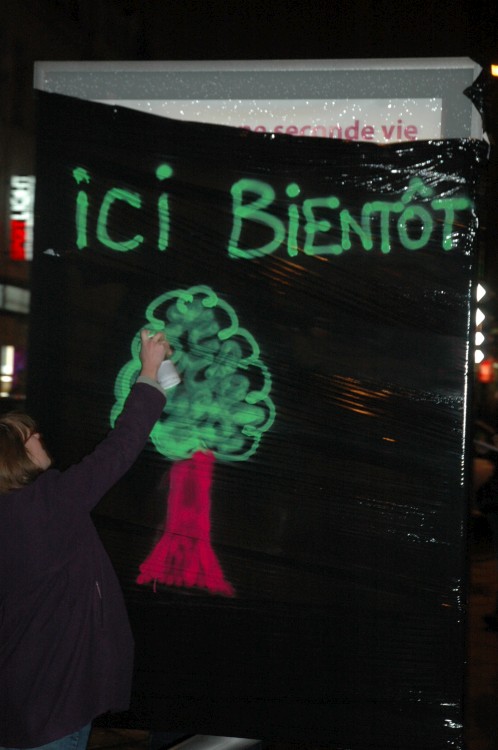 seconde vie
ici Bientôt